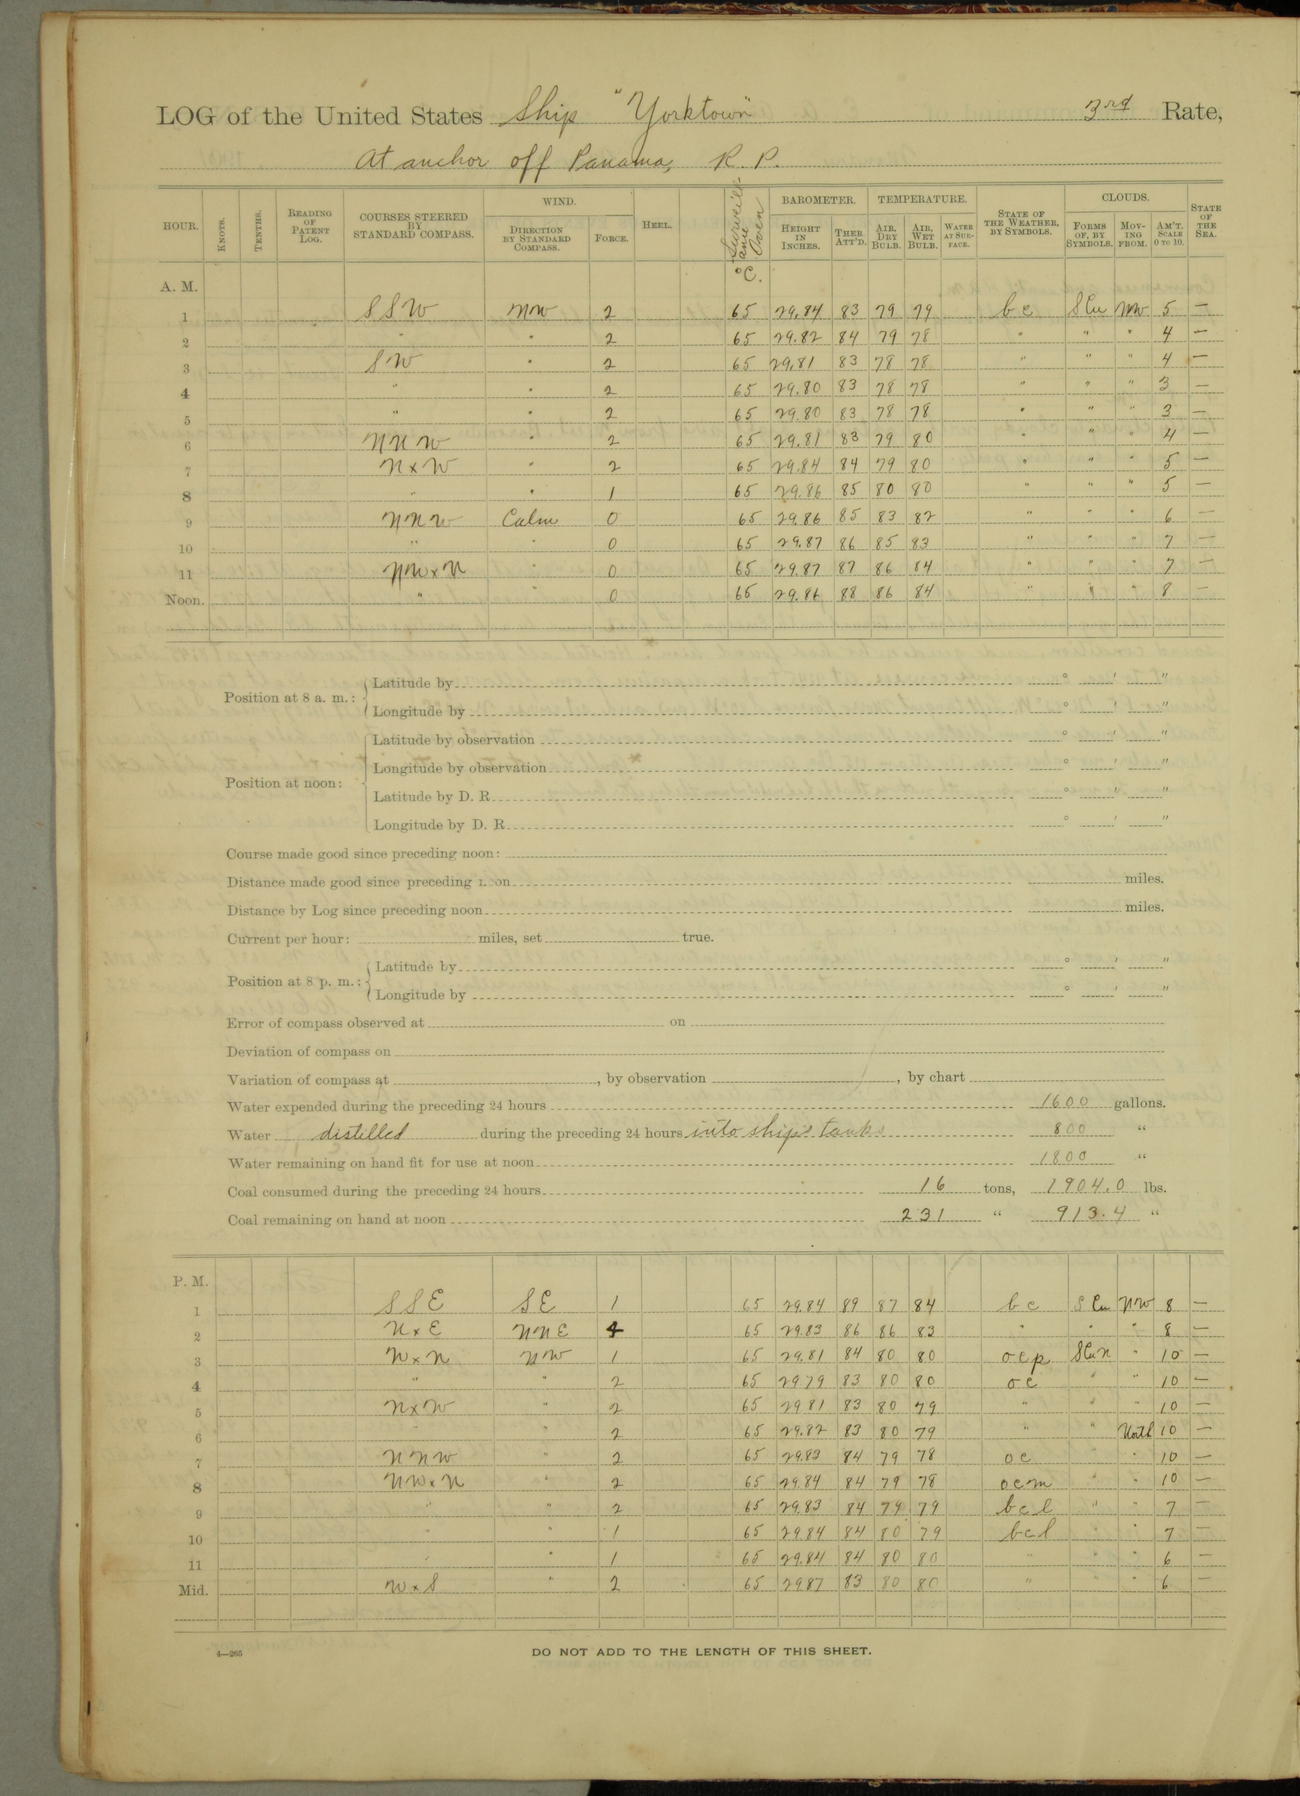 LOG of the United States Ship "Yorktown" 3rd Rate,
At anchor off Panama, R. P.
HOUR. KNOTS. TENTHS. READING OF PATENT LOG. COURSES STEERED BY STANDARD COMPASS. WIND. DIRECTION BY STANDARD COMPASS. FORCE. HEEL. °C. BAROMETER. HEIGHT IN INCHES. THER. ATT'D. TEMPERATURE. AIR, DRY BULB. AIR, WET BULB. WATER AT SURFACE. STATE OF THE WEATHER, BY SYMBOLS. CLOUDS. FORMS OF, BY SYMBOLS. MOVING FROM. AM'T. SCALE 0 TO 10. STATE OF THE SEA.
A. M.
1 SSW NW 2 65 29.84 83 79 79 bc SCu NW 5 —
2 " " 2 65 29.82 84 79 78 " " " 4 —
3 SW " 2 65 29.81 83 78 78 " " " 4 —
4 " " 2 65 29.80 83 78 78 " " " 3 —
5 " " 2 65 29.80 83 78 78 " " " 3 —
6 NNW " 2 65 29.81 83 79 80 " " " 4 —
7 NxW " 2 65 29.84 84 79 80 " " " 5 —
8 " " 1 65 29.86 85 80 80 " " " 5 —
9 NNW Calm 0 65 29.86 85 83 82 " " " 6 —
10 " " 0 65 29.87 86 85 83 " " " 7 —
11 NWxN " 0 65 29.87 87 86 84 " " " 7 —
Noon. " " 0 65 29.86 88 86 84 " " " 8 —
Position at 8 a. m.: Latitude by ° ' "
Longitude by ° ' "
Position at noon: Latitude by observation ° ' "
Longitude by observation ° ' "
Latitude by D. R. ° ' "
Longitude by D. R. ° ' "
Course made good since preceding noon:
Distance made good since preceding noon miles.
Distance by Log since preceding noon miles.
Current per hour: miles, set true.
Position at 8 p. m.: Latitude by ° ' "
Longitude by ° ' "
Error of compass observed at on
Deviation of compass on
Variation of compass at , by observation , by chart
Water expended during the preceding 24 hours 1600 gallons.
Water distilled during the preceding 24 hours into ship's tanks 800 "
Water remaining on hand fit for use at noon 1800 "
Coal consumed during the preceding 24 hours 16 tons, 1904.0 lbs.
Coal remaining on hand at noon 231 " 913.4 "
P. M.
1 SSE SE 1 65 29.84 89 87 84 bc SCu NW 8 —
2 NxE NNE 4 65 29.83 86 86 83 " " " 8 —
3 NxN NW 1 65 29.81 84 80 80 ocp SCuN " 10 —
4 " " 2 65 29.79 83 80 80 oc " " 10 —
5 NxW " 2 65 29.81 83 80 79 " " " 10 —
6 " " 2 65 29.82 83 80 79 " " North 10 —
7 NNW " 2 65 29.83 84 79 78 oc " " 10 —
8 NWxN " 2 65 29.84 84 79 78 ocm " " 10 —
9 " " 2 65 29.83 84 79 79 bcl " " 7 —
10 " " 1 65 29.84 84 80 79 bcl " " 7 —
11 " " 1 65 29.84 84 80 80 " " " 6 —
Mid. WxS " 2 65 29.87 83 80 80 " " " 6 —
4—265 DO NOT ADD TO THE LENGTH OF THIS SHEET.